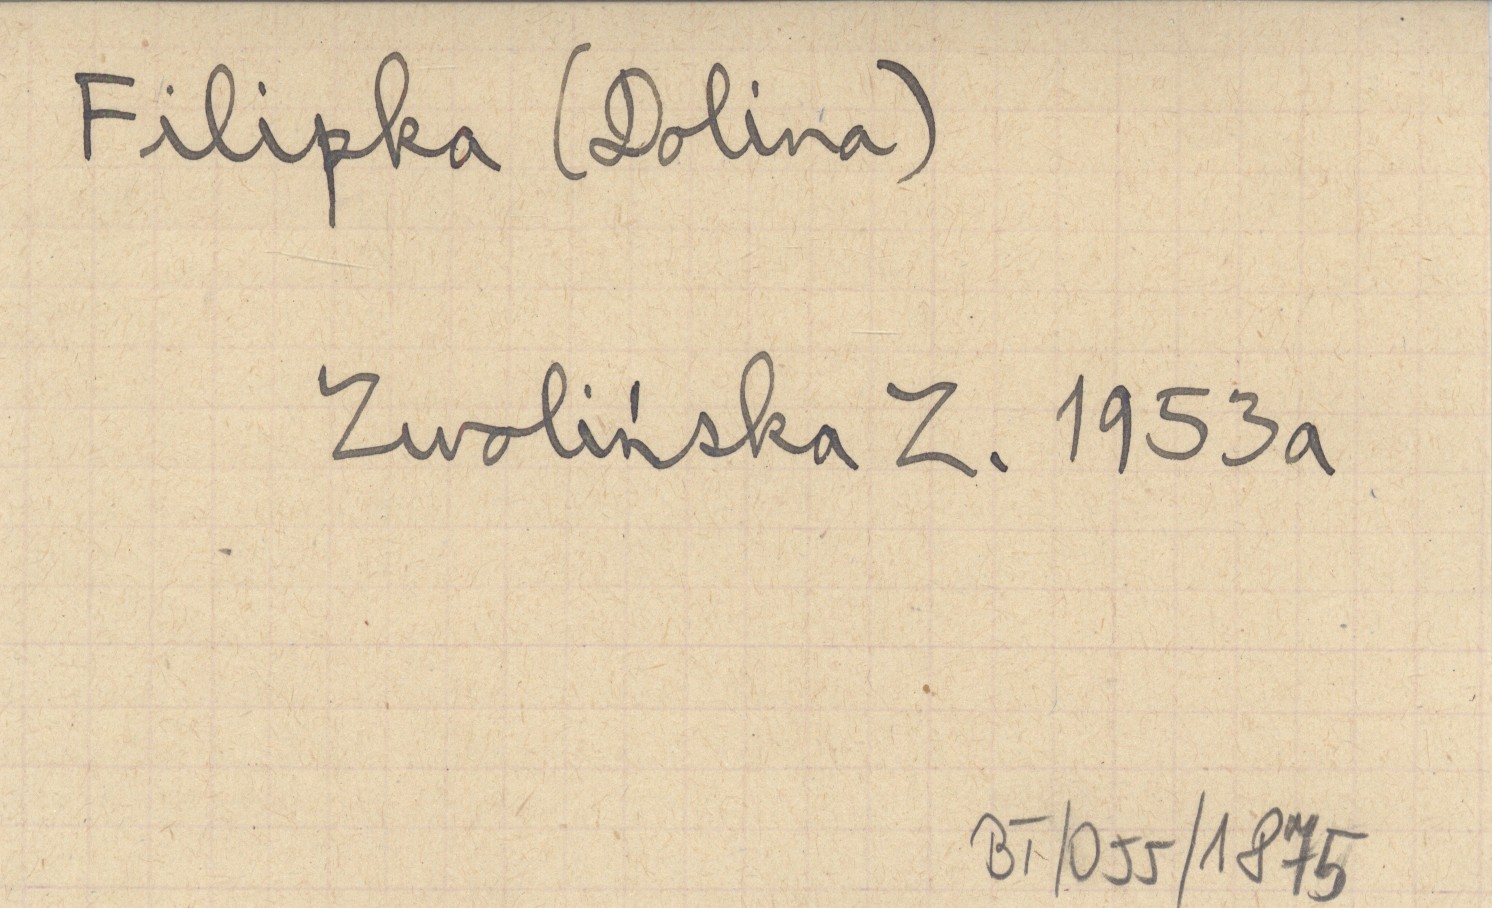 Filipka (Dolina)
Zwolińska Z. 1953a
BT/055/1875